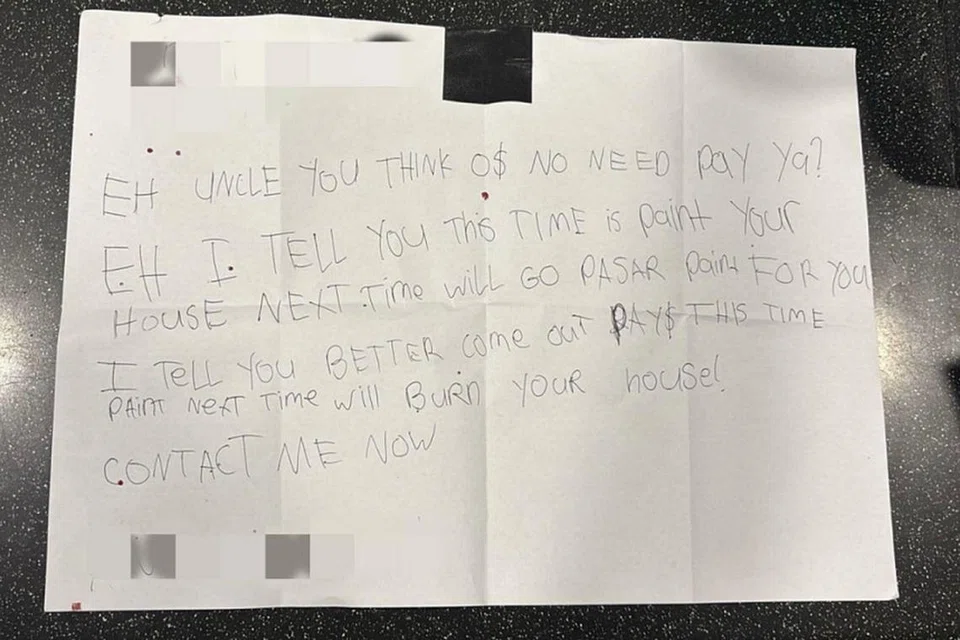 EH UNCLE YOU THINK O$ NO NEED PAY Ya?
EH I TELL YOU This TIME is paint Your
HOUSE NEXT Time will GO PASAR paint FOR YOU
I TeLL YOU BETTER come out PAY$ THIS TIME
PAINT NeXT Time will BURN YOUR house!
CONTACT ME NOW